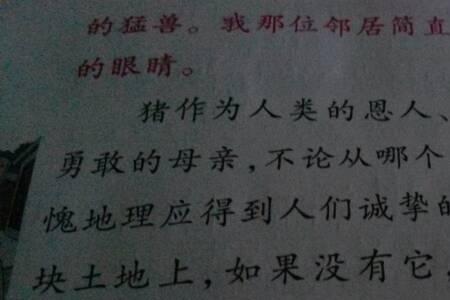 的猛兽。我那位邻居简直
的眼睛。
猪作为人类的恩人、
勇敢的母亲,不论从哪个
愧地理应得到人们诚挚的
块土地上,如果没有它,